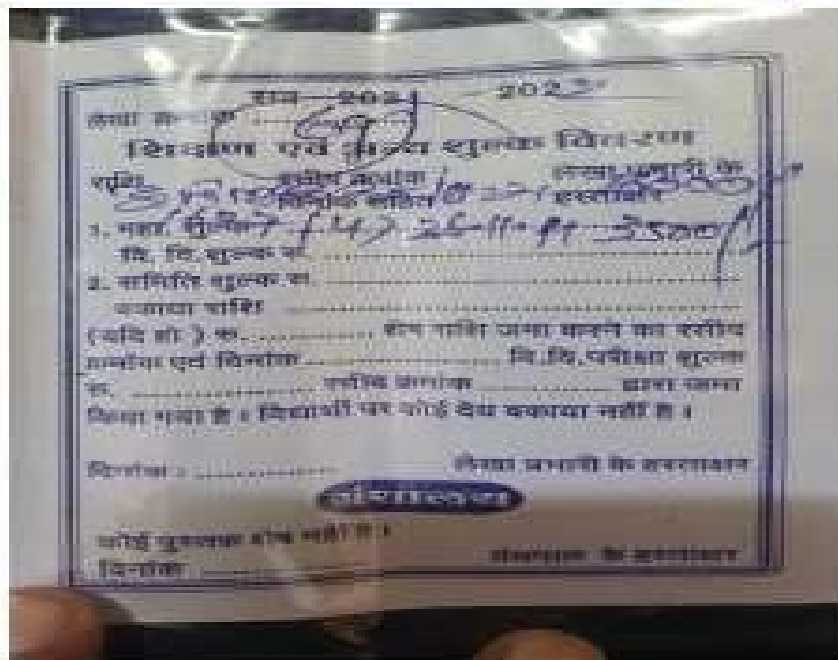 सत्र—2021 — 2022
लेखा क्रमांक
शिक्षण एवं अन्य शुल्क विवरण
राशि रसीद क्रमांक लेखा प्रभारी के
दिनांक सहित हस्ताक्षर
1. महा. शुल्क
वि. वि. शुल्क रू. ....................
2. समिति शुल्क रू. ....................
बकाया राशि ....................
(यदि हो) रू. .............. शेष राशि जमा करने का रसीद
क्रमांक एवं दिनांक .................... वि.वि.परीक्षा शुल्क
रू. .................... रसीद क्रमांक .............. द्वारा जमा
किया गया है। विद्यार्थी पर कोई देय बकाया नहीं है।
दिनांक : .............. लेखा प्रभारी के हस्ताक्षर
ग्रंथालय
कोई पुस्तक शेष नहीं है।
दिनांक .............. ग्रंथपाल के हस्ताक्षर